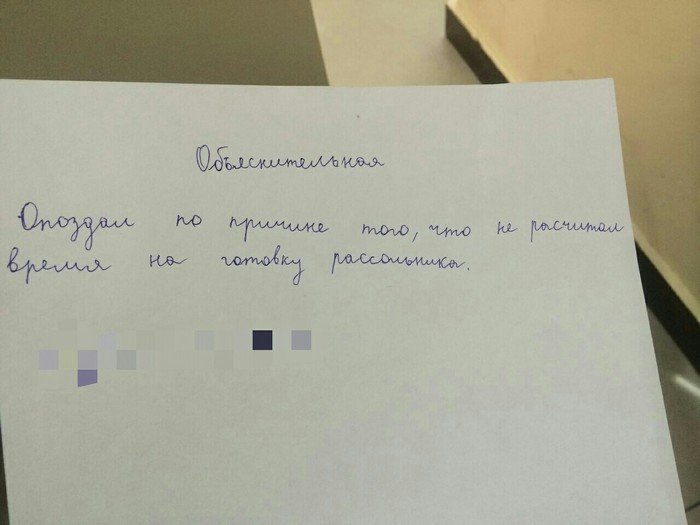 Объяснительная
Опоздал по причине того, что не расчитал
время на готовку рассольника.